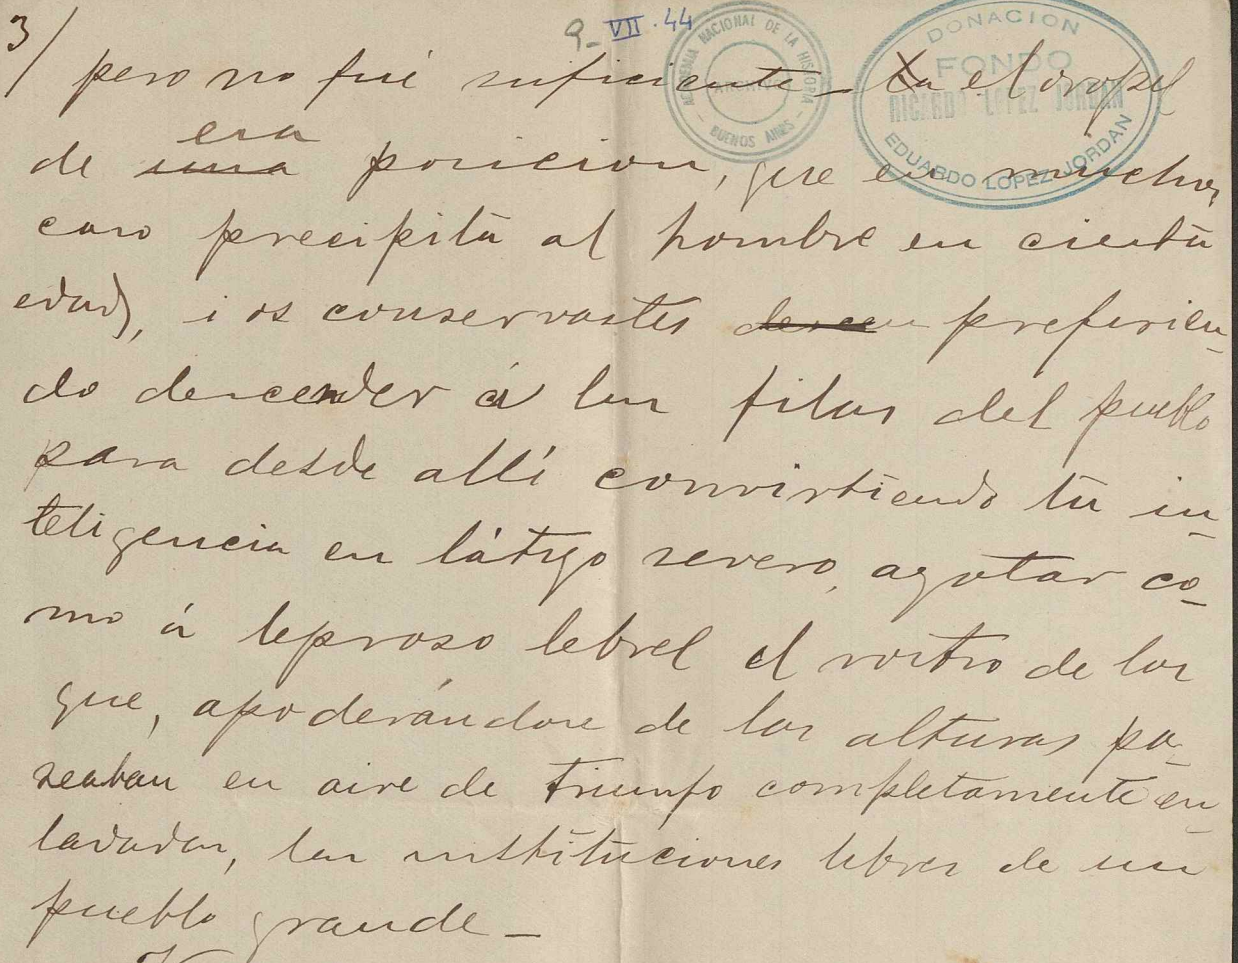 3/
9_ VII . 44
ACADEMIA NACIONAL DE LA HISTORIA
ARCHIVO
BUENOS AIRES
DONACION
FONDO
RICARDO LOPEZ JORDAN
EDUARDO LOPEZ JORDAN
pero no fué suficiente – el oropel
era
de una posicion, que en muchos
caso precipita al hombre en cierta
edad, i os conservastes prefirien-
do descender á las filas del pueblo
para desde allí convirtiendo tu in-
teligencia en látigo severo, azotar co-
mo á leproso lebrel el rostro de los
que, apoderándose de las alturas pa-
seaban en aire de triunfo completamente en-
lodadas, las instituciones libres de un
pueblo grande –